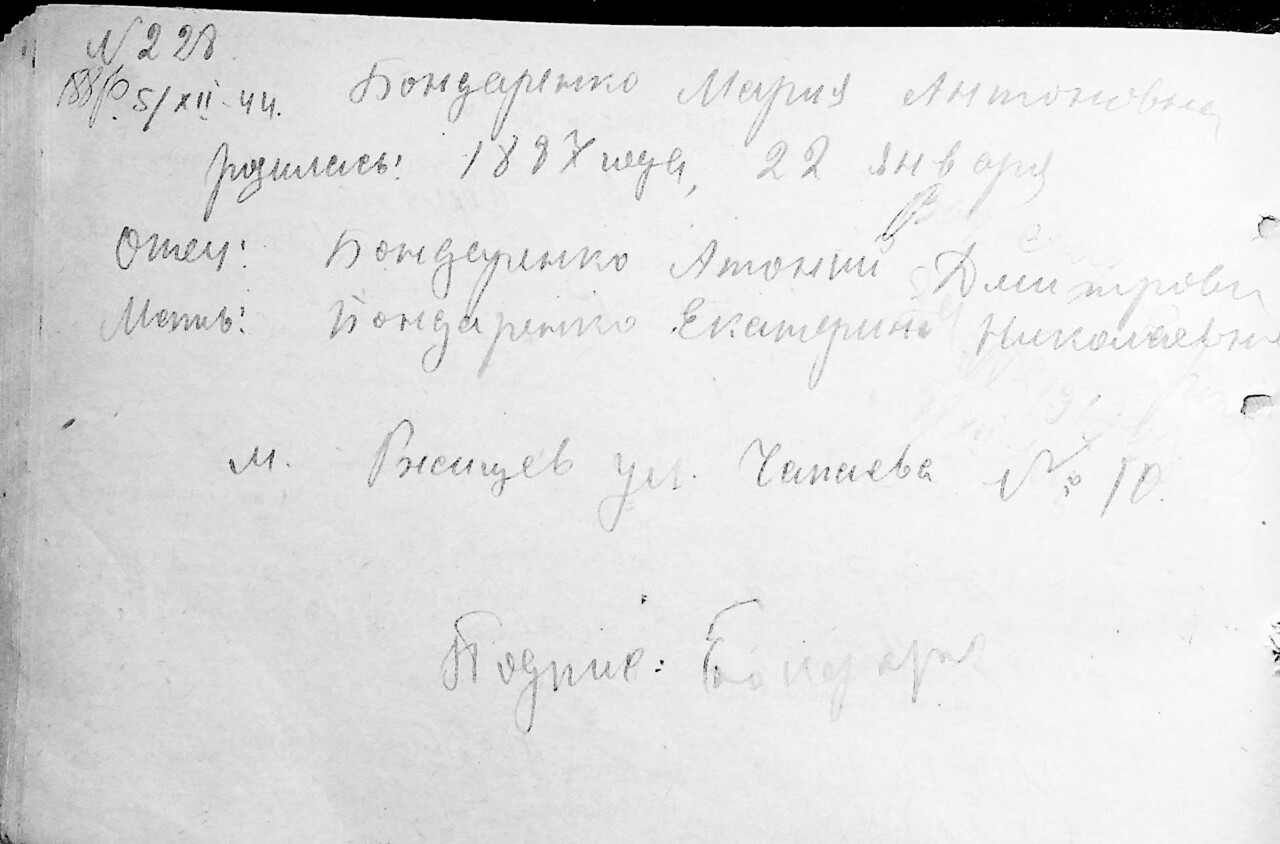 N 228
5/XII-44.
Бондаренко Мария Антоновна
родилась: 1887 года, 22 января
Отец: Бондаренко Атоний Дмитрови
Мать: Бондаренко Екатерина Николаевна
м. Ржищев ул. Чапаева № 10.
Подпис: